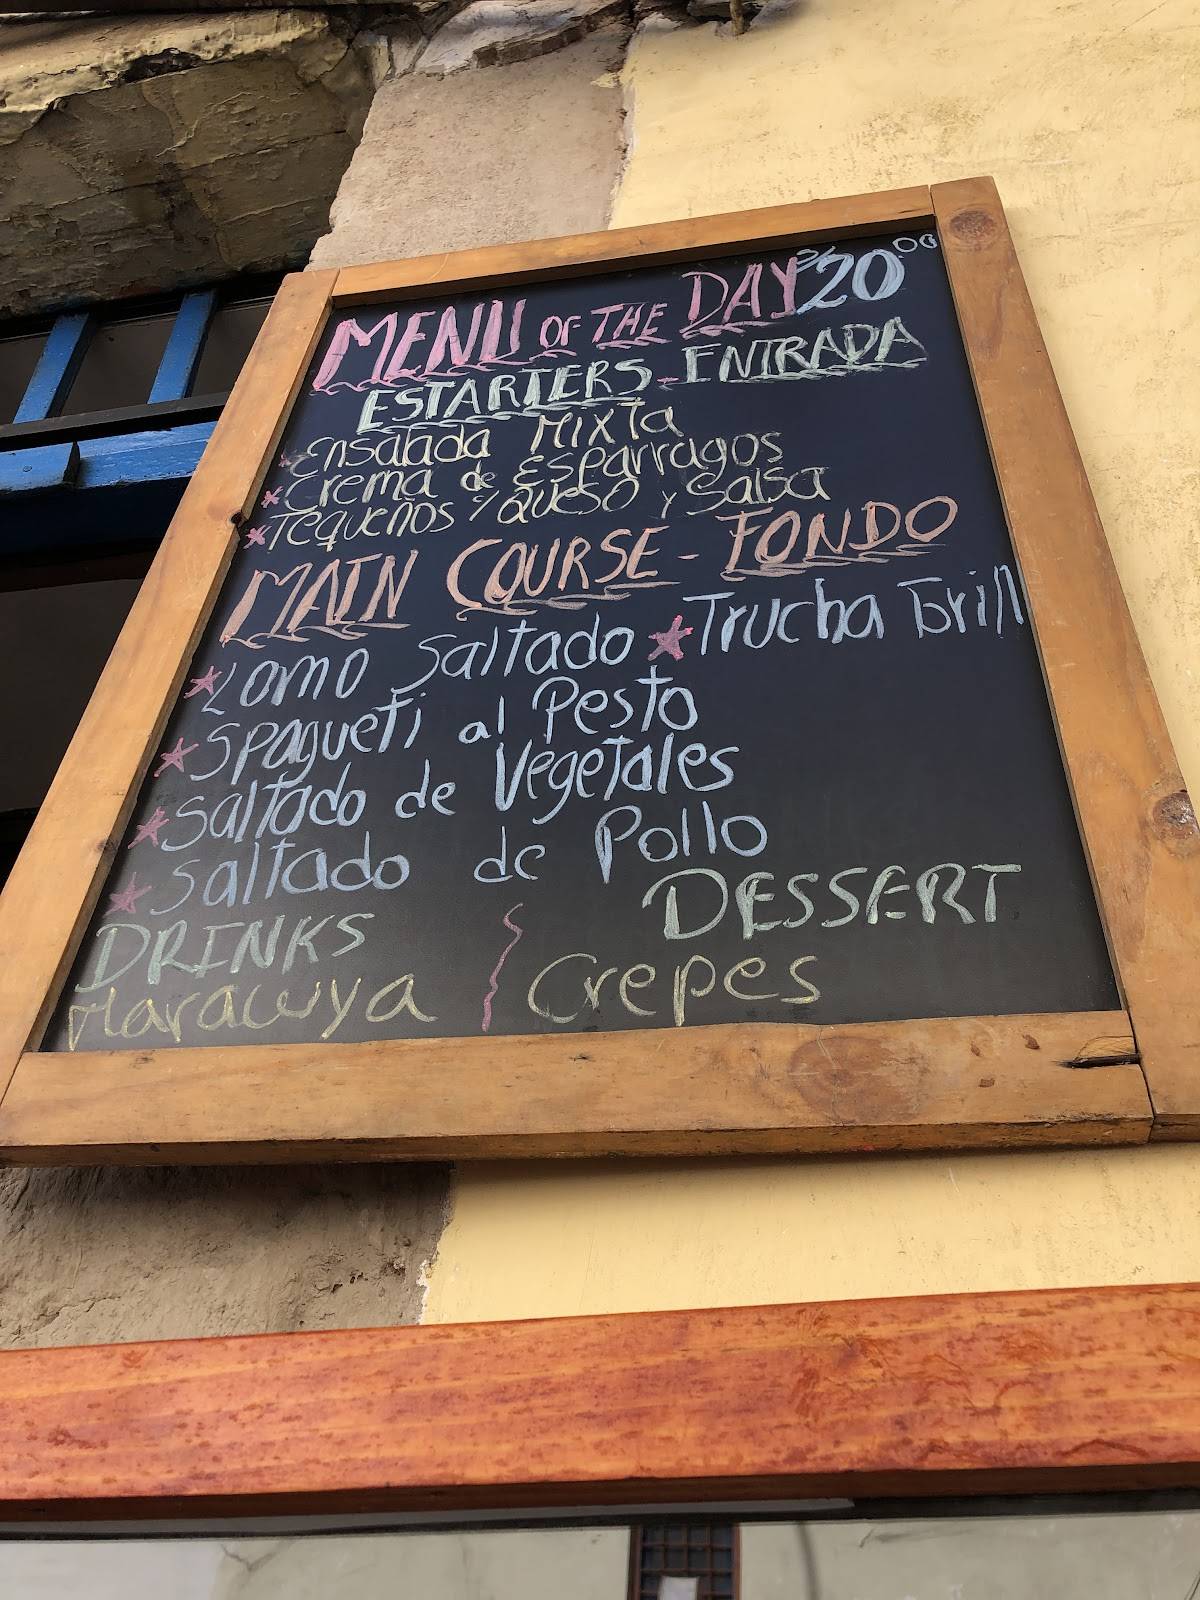 MENU OF THE DAY S/20.00
ESTARTERS - ENTRADA
Ensalada Mixta
* Crema de Esparragos
* Tequeños c/ Queso y Salsa
MAIN COURSE - FONDO
* Lomo Saltado * Trucha Grill
* Spagueti al Pesto
* Saltado de Vegetales
* Saltado de Pollo
DRINKS DESSERT
Maracuya Crepes